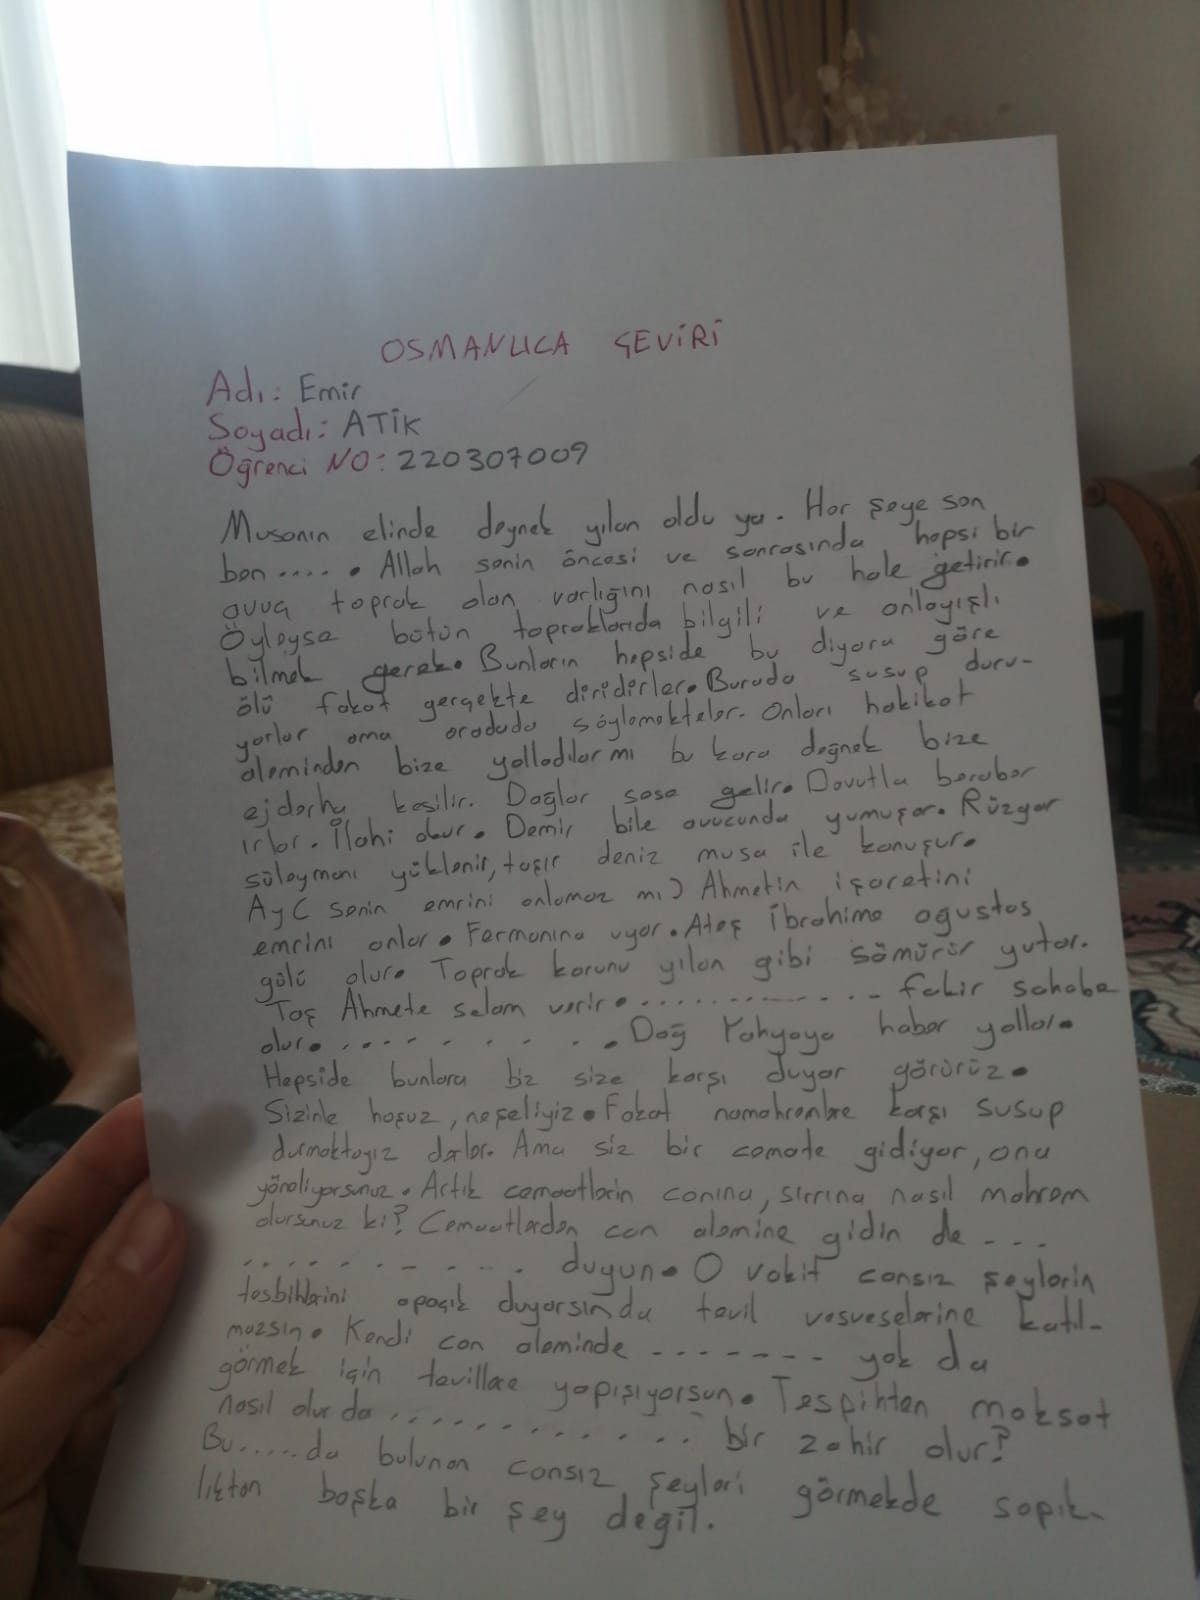 OSMANLICA ÇEVİRİ
Adı: Emir
Soyadı: ATİK
Öğrenci NO: 220307009
Musanın elinde deynek yılan oldu ya. Her şeye son
ben..... Allah senin öncesi ve sonrasında hepsi bir
avuç toprak olan varlığını nasıl bu hale getirir.
Öyleyse bütün topraklarıda bilgili ve anlayışlı
bilmek gerek. Bunların hepside bu diyara göre
ölü fakat gerçekte diridirler. Burada susup duru-
yorlar ama oradada söylemekteler. Onları hakikat
aleminden bize yolladılar mı bu kara değnek bize
ejderha kesilir. Dağlar sese gelir. Davutla beraber
ırlar. İlahi okur. Demir bile avucunda yumuşar. Rüzgar
süleymanı yüklenir, taşır deniz musa ile konuşur.
Ay senin emrini anlamaz mı? Ahmetin işaretini
emrini anlar. Fermanına uyar. Ateş İbrahime ağustos
gülü olur. Toprak karunu yılan gibi sömürür yutar.
Taş Ahmete selam verir. ............ fakir sahabe
olur. .......... Dağ Yahyaya haber yollar.
Hepside bunlara biz size karşı duyar görürüz.
Sizinle hoşuz, neşeliyiz. Fakat namahremlere karşı susup
durmaktayız derler. Ama siz bir camate gidiyor, ona
yöneliyorsunuz. Artık cemaatlerin canına, sırrına nasıl mahrem
olursunuz ki? Cemaatlerden can alemine gidin de ---
.......... duyun. O vakit cansız şeylerin
tesbihlerini apaçık duyarsında tevil vesveselerine katıl-
mazsın. Kendi can aleminde ------- yok da
görmek için tevillere yapışıyorsun. Tespihten maksat
nasıl olur da ............ bir zahir olur?
Bu.....da bulunan cansız şeyleri görmekde sapık-
lıktan başka bir şey değil.